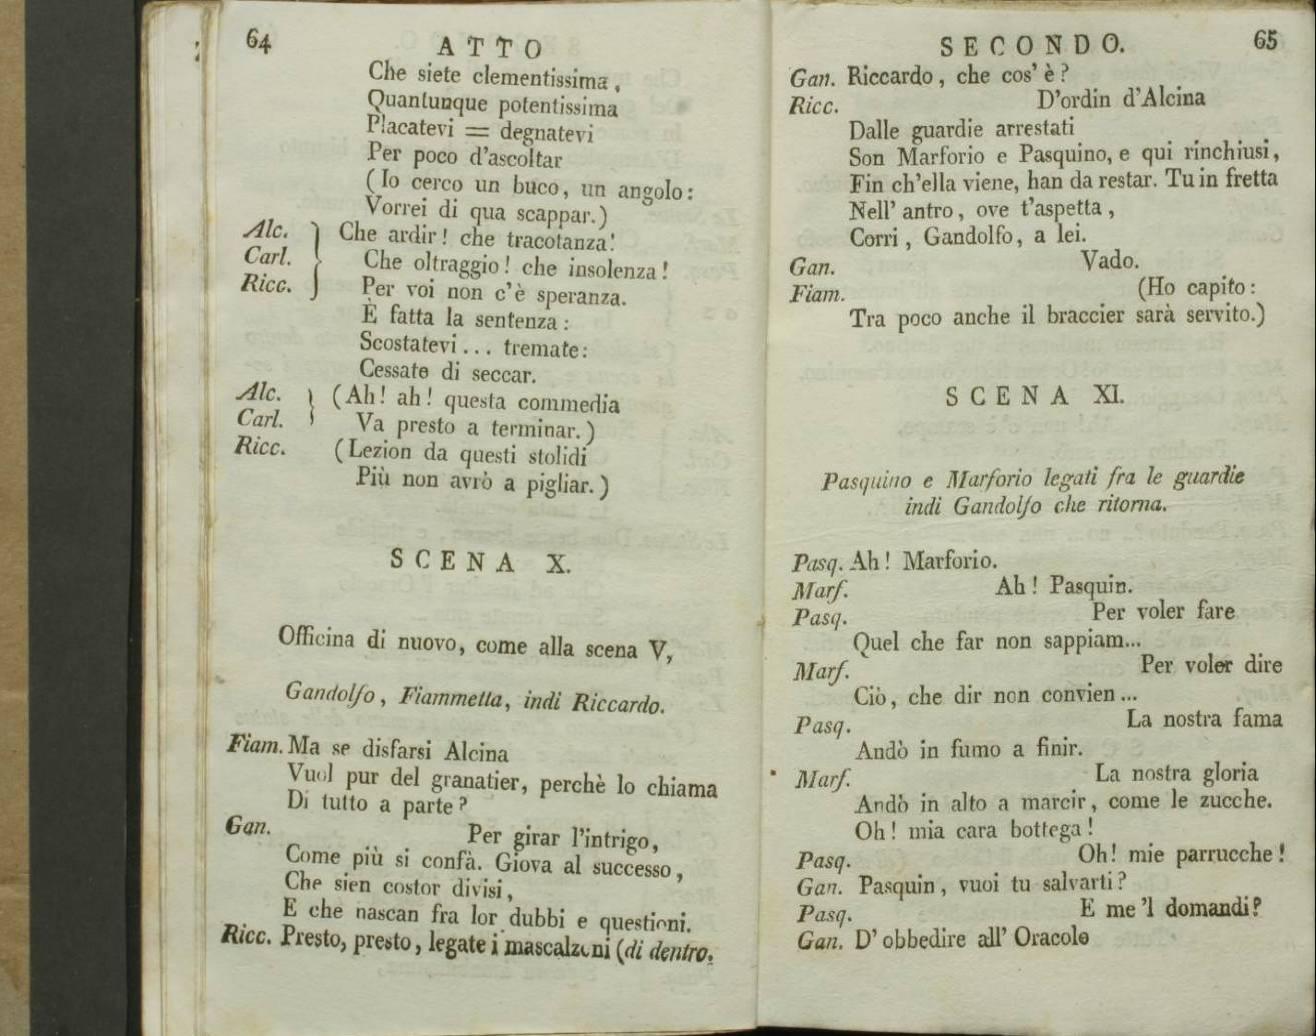 64
ATTO
Che siete clementissima,
Quantunque potentissima
Placatevi = degnatevi
Per poco d'ascoltar
(Io cerco un buco, un angolo:
Vorrei di qua scappar.)
Alc. Che ardir! che tracotanza!
Carl. Che oltraggio! che insolenza!
Ricc. Per voi non c'è speranza.
È fatta la sentenza:
Scostatevi... tremate:
Cessate di seccar.
Alc. (Ah! ah! questa commedia
Carl. Va presto a terminar.)
Ricc. (Lezion da questi stolidi
Più non avrò a pigliar.)
SCENA X.
Officina di nuovo, come alla scena V,
Gandolfo, Fiammetta, indi Riccardo.
Fiam. Ma se disfarsi Alcina
Vuol pur del granatier, perchè lo chiama
Di tutto a parte?
Gan. Per girar l'intrigo,
Come più si confà. Giova al successo,
Che sien costor divisi,
E che nascan fra lor dubbi e questioni.
Ricc. Presto, presto, legate i mascalzoni (di dentro.
SECONDO. 65
Gan. Riccardo, che cos' è?
Ricc. D'ordin d'Alcina
Dalle guardie arrestati
Son Marforio e Pasquino, e qui rinchiusi,
Fin ch'ella viene, han da restar. Tu in fretta
Nell' antro, ove t'aspetta,
Corri, Gandolfo, a lei.
Gan. Vado.
Fiam. (Ho capito:
Tra poco anche il braccier sarà servito.)
SCENA XI.
Pasquino e Marforio legati fra le guardie
indi Gandolfo che ritorna.
Pasq. Ah! Marforio.
Marf. Ah! Pasquin.
Pasq. Per voler fare
Quel che far non sappiam...
Marf. Per voler dire
Ciò, che dir non convien...
Pasq. La nostra fama
Andò in fumo a finir.
Marf. La nostra gloria
Andò in alto a marcir, come le zucche.
Oh! mia cara bottega!
Pasq. Oh! mie parrucche!
Gan. Pasquin, vuoi tu salvarti?
Pasq. E me 'l domandi?
Gan. D' obbedire all' Oracolo